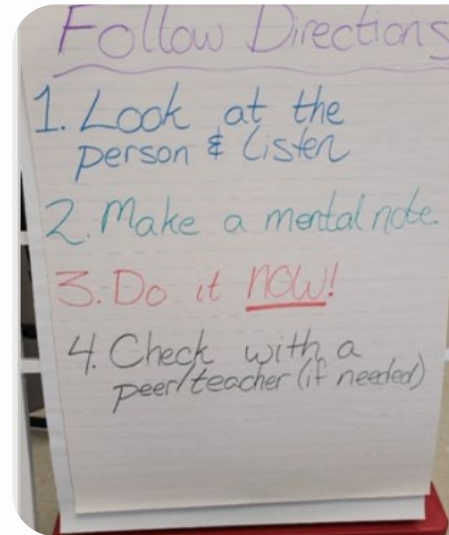 Follow Directions
1. Look at the
person & Listen
2. Make a mental note.
3. Do it now!
4. Check with a
peer/teacher (if needed)